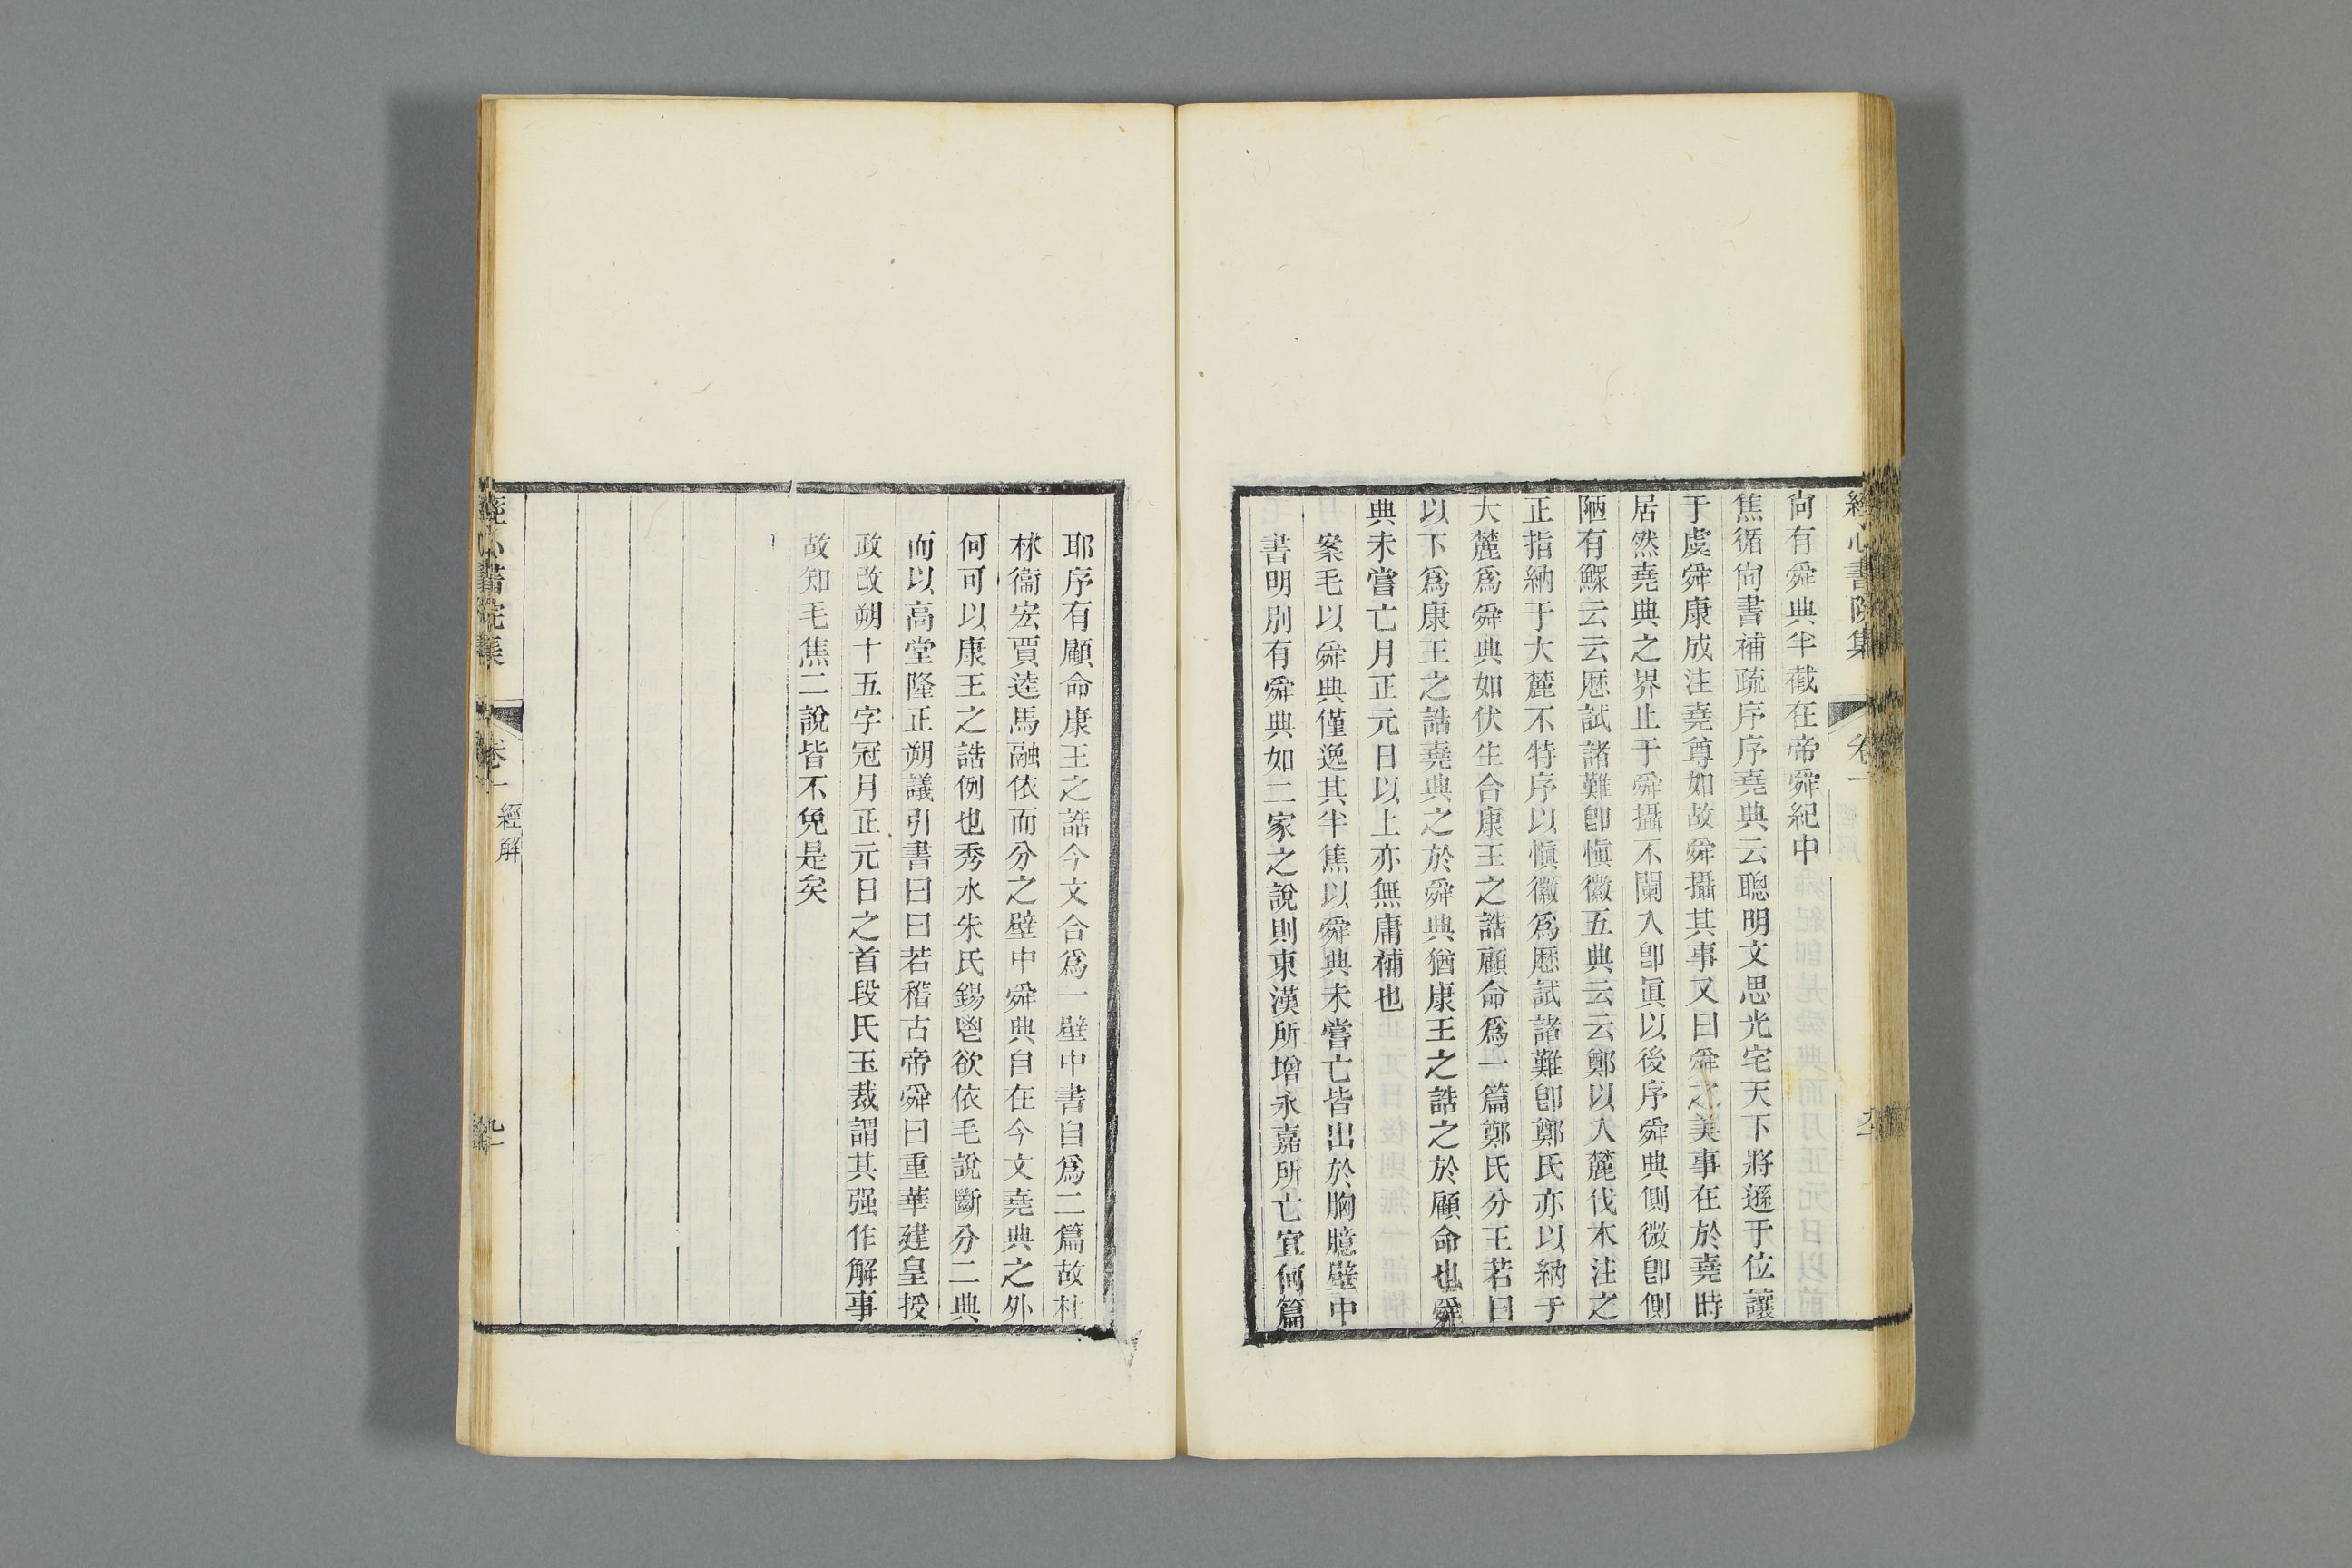 經心書院集 卷一
尙有舜典半截在帝舜紀中
焦循尙書補疏序序堯典云聰明文思光宅天下將遜于位讓
于虞舜康成注堯尊如故舜攝其事又曰舜之美事在於堯時
居然堯典之界止于舜攝不闌入卽眞以後序舜典側微卽側
陋有鰥云云厯試諸難卽愼徽五典云云鄭以入麓伐木注之
正指納于大麓不特序以愼徽爲厯試諸難卽鄭氏亦以納于
大麓爲舜典如伏生合康王之誥顧命爲一篇鄭氏分王若曰
以下爲康王之誥堯典之於舜典猶康王之誥之於顧命也舜
典未嘗亡月正元日以上亦無庸補也
案毛以舜典僅逸其半焦以舜典未嘗亡皆出於胸臆壁中
書明別有舜典如二家之說則東漢所增永嘉所亡宜何篇
耶序有顧命康王之誥今文合爲一壁中書自爲二篇故杜
林衞宏賈逵馬融依而分之壁中舜典自在今文堯典之外
何可以康王之誥例也秀水朱氏錫鬯欲依毛說斷分二典
而以高堂隆正朔議引書曰曰若稽古帝舜曰重華建皇授
政改朔十五字冠月正元日之首段氏玉裁謂其强作解事
故知毛焦二說皆不免是矣
經心書院集 卷一 經解